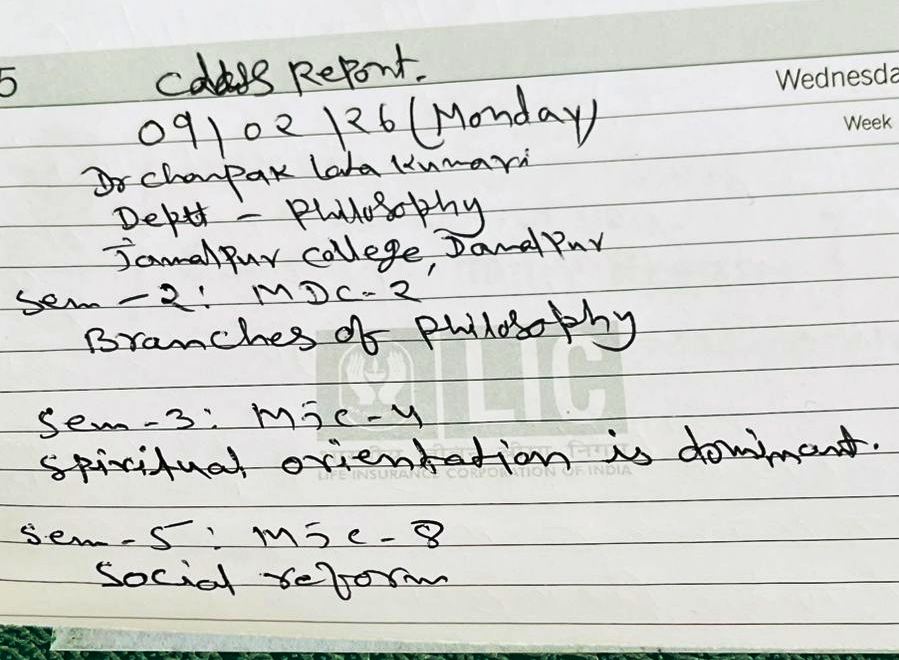 5
Class Report.
Wednesda
09/02/26 (Monday)
Week
Dr Champak lata Kumari
Deptt - Philosophy
Jamalpur College, Jamalpur
Sem - 2: MDC-2
Branches of Philosophy
LIC
Sem - 3: MJC-4
Spiritual orientation is dominant.
LIFE INSURANCE CORPORATION OF INDIA
Sem - 5: MJC - 8
Social reform